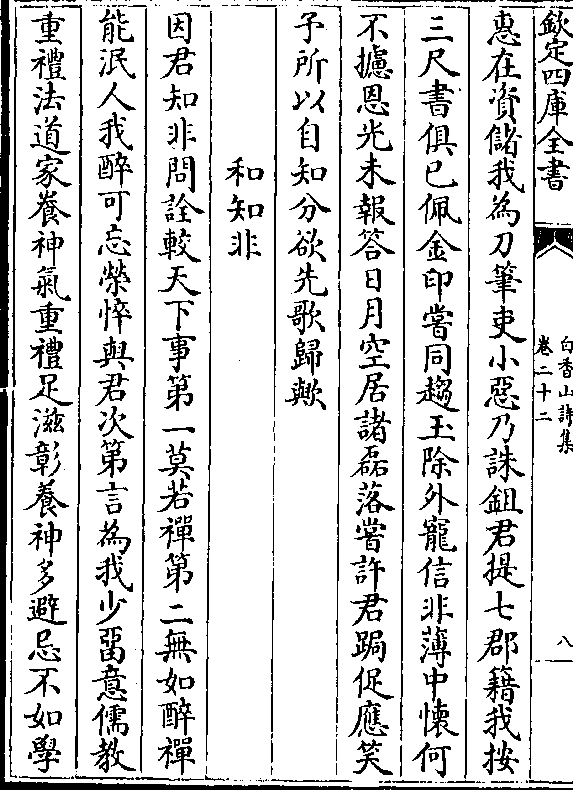 欽定四庫全書
白香山詩集
卷二十二
八
惠在資儲我為刀筆吏小惡乃誅鉏君提七郡籍我按
三尺書俱已佩金印嘗同趨玉除外寵信非薄中懷何
不攄恩光未報答日月空居諸磊落嘗許君跼促應笑
予所以自知分欲先歌歸歟
和知非
因君知非問詮較天下事第一莫若禪第二無如醉禪
能泯人我醉可忘榮悴與君次第言為我少畱意儒教
重禮法道家養神氣重禮足滋彰養神多避忌不如學